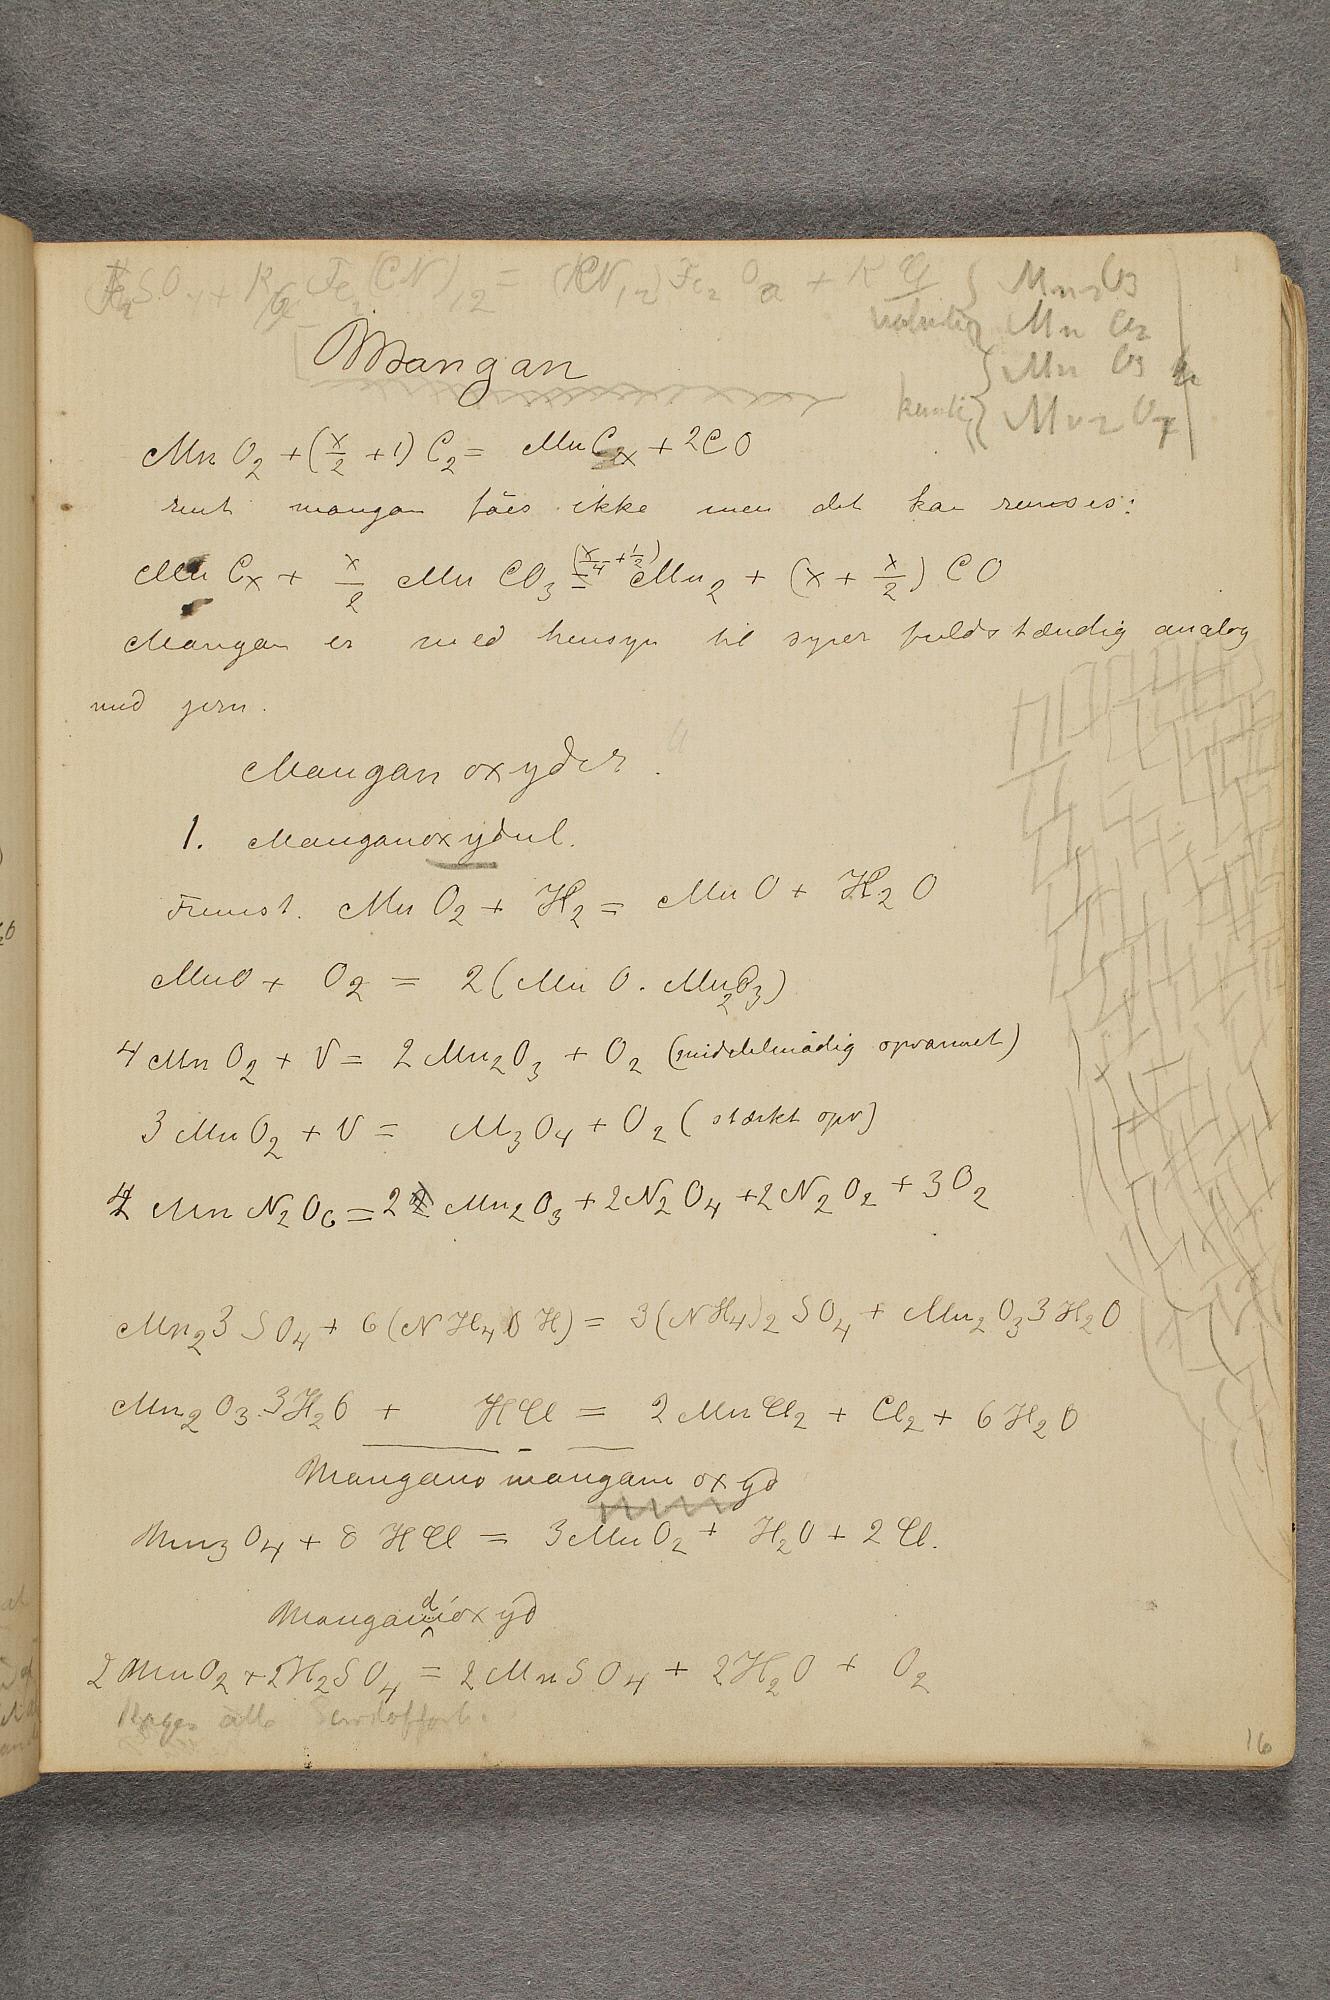 Mn₂O₃
MnO₂
MnO₃
Mn₂O₇
Mangan
MnO₂ + (x/2 + 1) C₂ = MnCₓ + 2CO
rent mangan fåes ikke men det kan renses:
MnCₓ + x/2 MnCO₃ = (x/4 + 1/2) Mn₂ + (x + x/2) CO
Mangan er med hensyn til syrer fuldstændig analog
med jern.
Manganoxyder.
1. Manganoxydul.
Fremst. MnO₂ + H₂ = MnO + H₂O
MnO + O₂ = 2(MnO. Mn₂O₃)
4MnO₂ + V = 2Mn₂O₃ + O₂ (middelmådig opvarmet)
3MnO₂ + V = M₃O₄ + O₂ (stærkt opv)
4MnN₂O₆ = 2Mn₂O₃ + 2N₂O₄ + 2N₂O₂ + 3O₂
Mn₂3SO₄ + 6(NH₄OH) = 3(NH₄)₂SO₄ + Mn₂O₃3H₂O
Mn₂O₃.3H₂O + HCl = 2MnCl₂ + Cl₂ + 6H₂O
Mangano mangani oxyd
Mn₃O₄ + 8HCl = 3MnO₂ + H₂O + 2Cl.
Mangandioxyd
2MnO₂ + 2H₂SO₄ = 2MnSO₄ + 2H₂O + O₂
alle
16